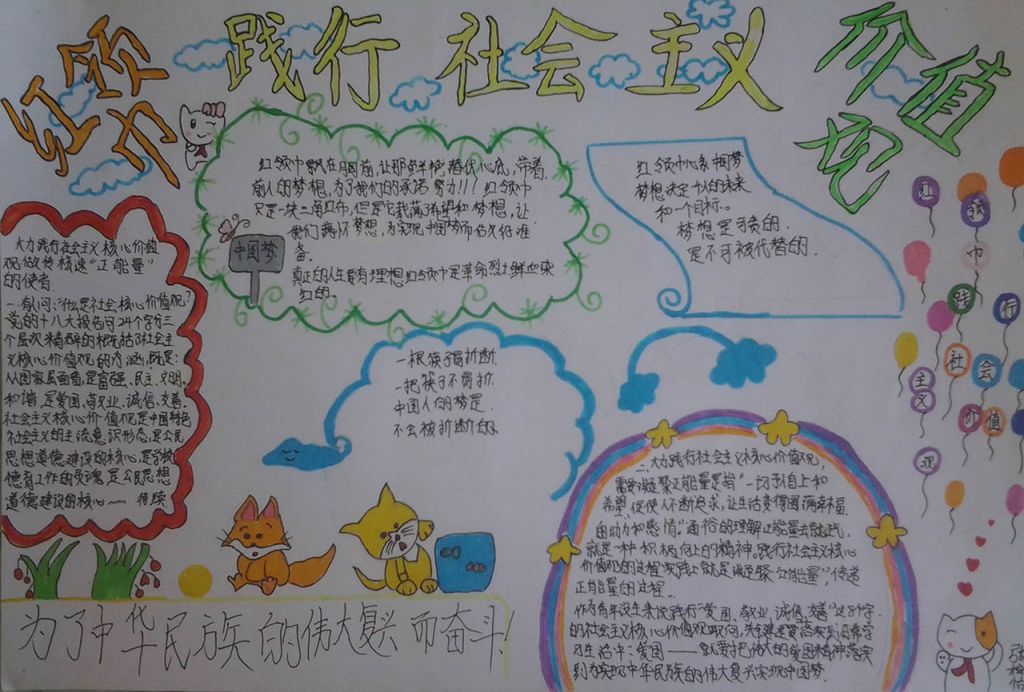 红领巾
践行 社会主义
价值观
大力践行社会主义核心价值
观做传核速“正能量”
的使者
一.有人问:什么是社会核心价值观?
党的十八大报告用24个字分三
个层次精辟的概括了社会主
义核心价值观的内涵,既是:
从国家层面看,是富强、民主、文明、
和谐,是爱国、敬业、诚信、友善.
社会主义核心价值观是中国特色
社会主义的主流意识形态,是公民
思想道德建设的核心,是学校
德育工作的灵魂,是公民思想
道德建设的核心…… 待续
红领巾飘在胸前,让那鲜艳
前人的梦想,为了我们的承诺 努力!!!红领巾
只是一块三角红布,但是它载满了希望和梦想,让
我们满怀梦想,为实现中国梦而时刻准
备.
真正的人生要有理想红领巾中是革命烈士鲜血染
红的.
中国梦
红领巾心系中国梦
梦想决定个人的未来
和一个目标。
梦想是可贵的.
是不可被代替的.
一根筷子易折断.
一把筷子不易折.
中国人的梦是
不会被折断的.
红
领
巾
践
行
社
会
主
义
价
值
观
二.大力践行社会主义核心价值观,
需要凝聚正能量是指“一切予人向上和
希望,促使人不断追求,让生活变得圆满幸福
的动力和感情.”通俗的理解正能量
就是一种积极向上的精神.践行社会主义核心
价值观的过程实践上就是凝聚“正能量”传递
正能量的过程.
作为青年学生来说践行“爱国、敬业、诚信、友善”这8个字
的社会主义核心价值观取向,
习生活中:爱国——就要把伟大的爱国精神落实
到为实现中华民族的伟大复兴实现中国梦.
为了中华民族的伟大复兴而奋斗!